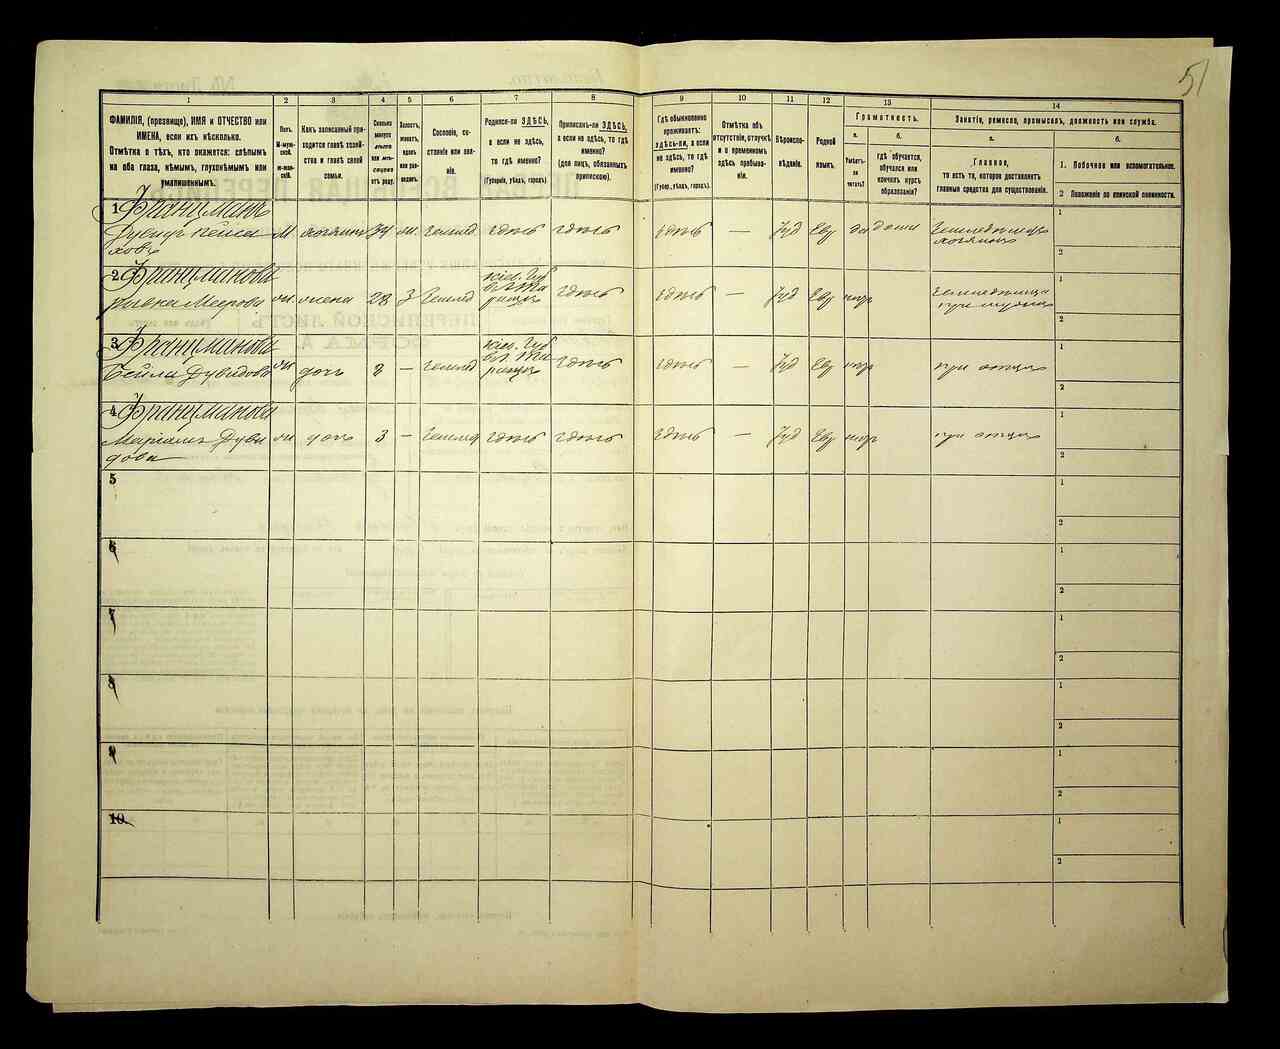 51
1 2 3 4 5 6 7 8 9 10 11 12 13 14
ФАМИЛІЯ, (прозвище), ИМЯ и ОТЧЕСТВО или
ИМЕНА, если ихъ нѣсколько.
Отмѣтка о тѣхъ, кто окажется: слѣпымъ
на оба глаза, нѣмымъ, глухонѣмымъ или
умалишеннымъ.
Полъ.
М-муж-
ской.
ж-жен-
скій.
Какъ записанный при-
ходится главѣ хозяй-
ства и главѣ своей
семьи.
Сколько
минуло
лѣтъ
или мѣ-
сяцевъ
отъ роду.
Холостъ,
женатъ,
вдовъ
или раз-
веденъ.
Сословіе, со-
стояніе или зва-
ніе.
Родился-ли ЗДѢСЬ,
а если не здѣсь,
то гдѣ именно?
(Губернія, уѣздъ, городъ).
Приписанъ-ли ЗДѢСЬ,
а если не здѣсь, то гдѣ
именно?
(для лицъ, обязанныхъ
припискою).
Гдѣ обыкновенно
проживаетъ:
здѣсь-ли, а если
не здѣсь, то гдѣ
именно?
(Губер., уѣздъ, городъ).
Отмѣтка объ
отсутствіи, отлучкѣ
и о временномъ
здѣсь пребыва-
ніи.
Вѣроиспо-
вѣданіе.
Родной
языкъ.
Грамотность.
а.
Умѣетъ-
ли
читать?
б.
гдѣ обучается,
обучался или
кончилъ курсъ
образованія?
Занятіе, ремесло, промыселъ, должность или служба.
а.
Главное,
то есть то, которое доставляетъ
главныя средства для существованія.
б.
1. Побочное или вспомогательное.
2 Положеніе по воинской повинности.
1 Францманъ
Дувидъ Пейса
ховъ
М хозяинъ 34 ж. Землед здѣсь здѣсь здѣсь — Іуд Евр да дома
Земледѣлецъ
хозяинъ
1
2
2 Францманова
Меерова
жи жена 28 З Землед
Кіев. Губ
здѣсь здѣсь — Іуд Евр нѣт
при мужѣ
1
2
3 Францманова
Бейла Дувидова
жи дочь — Землед
Кіев. Губ
здѣсь здѣсь — Іуд Евр нѣт при отцѣ
1
2
4 Францманова
Маріамъ Дуви
дова
жи дочь 3 — Землед здѣсь здѣсь здѣсь — Іуд Евр нѣт при отцѣ
1
2
5
1
2
6
1
2
7
1
2
8
1
2
9
1
2
10
1
2